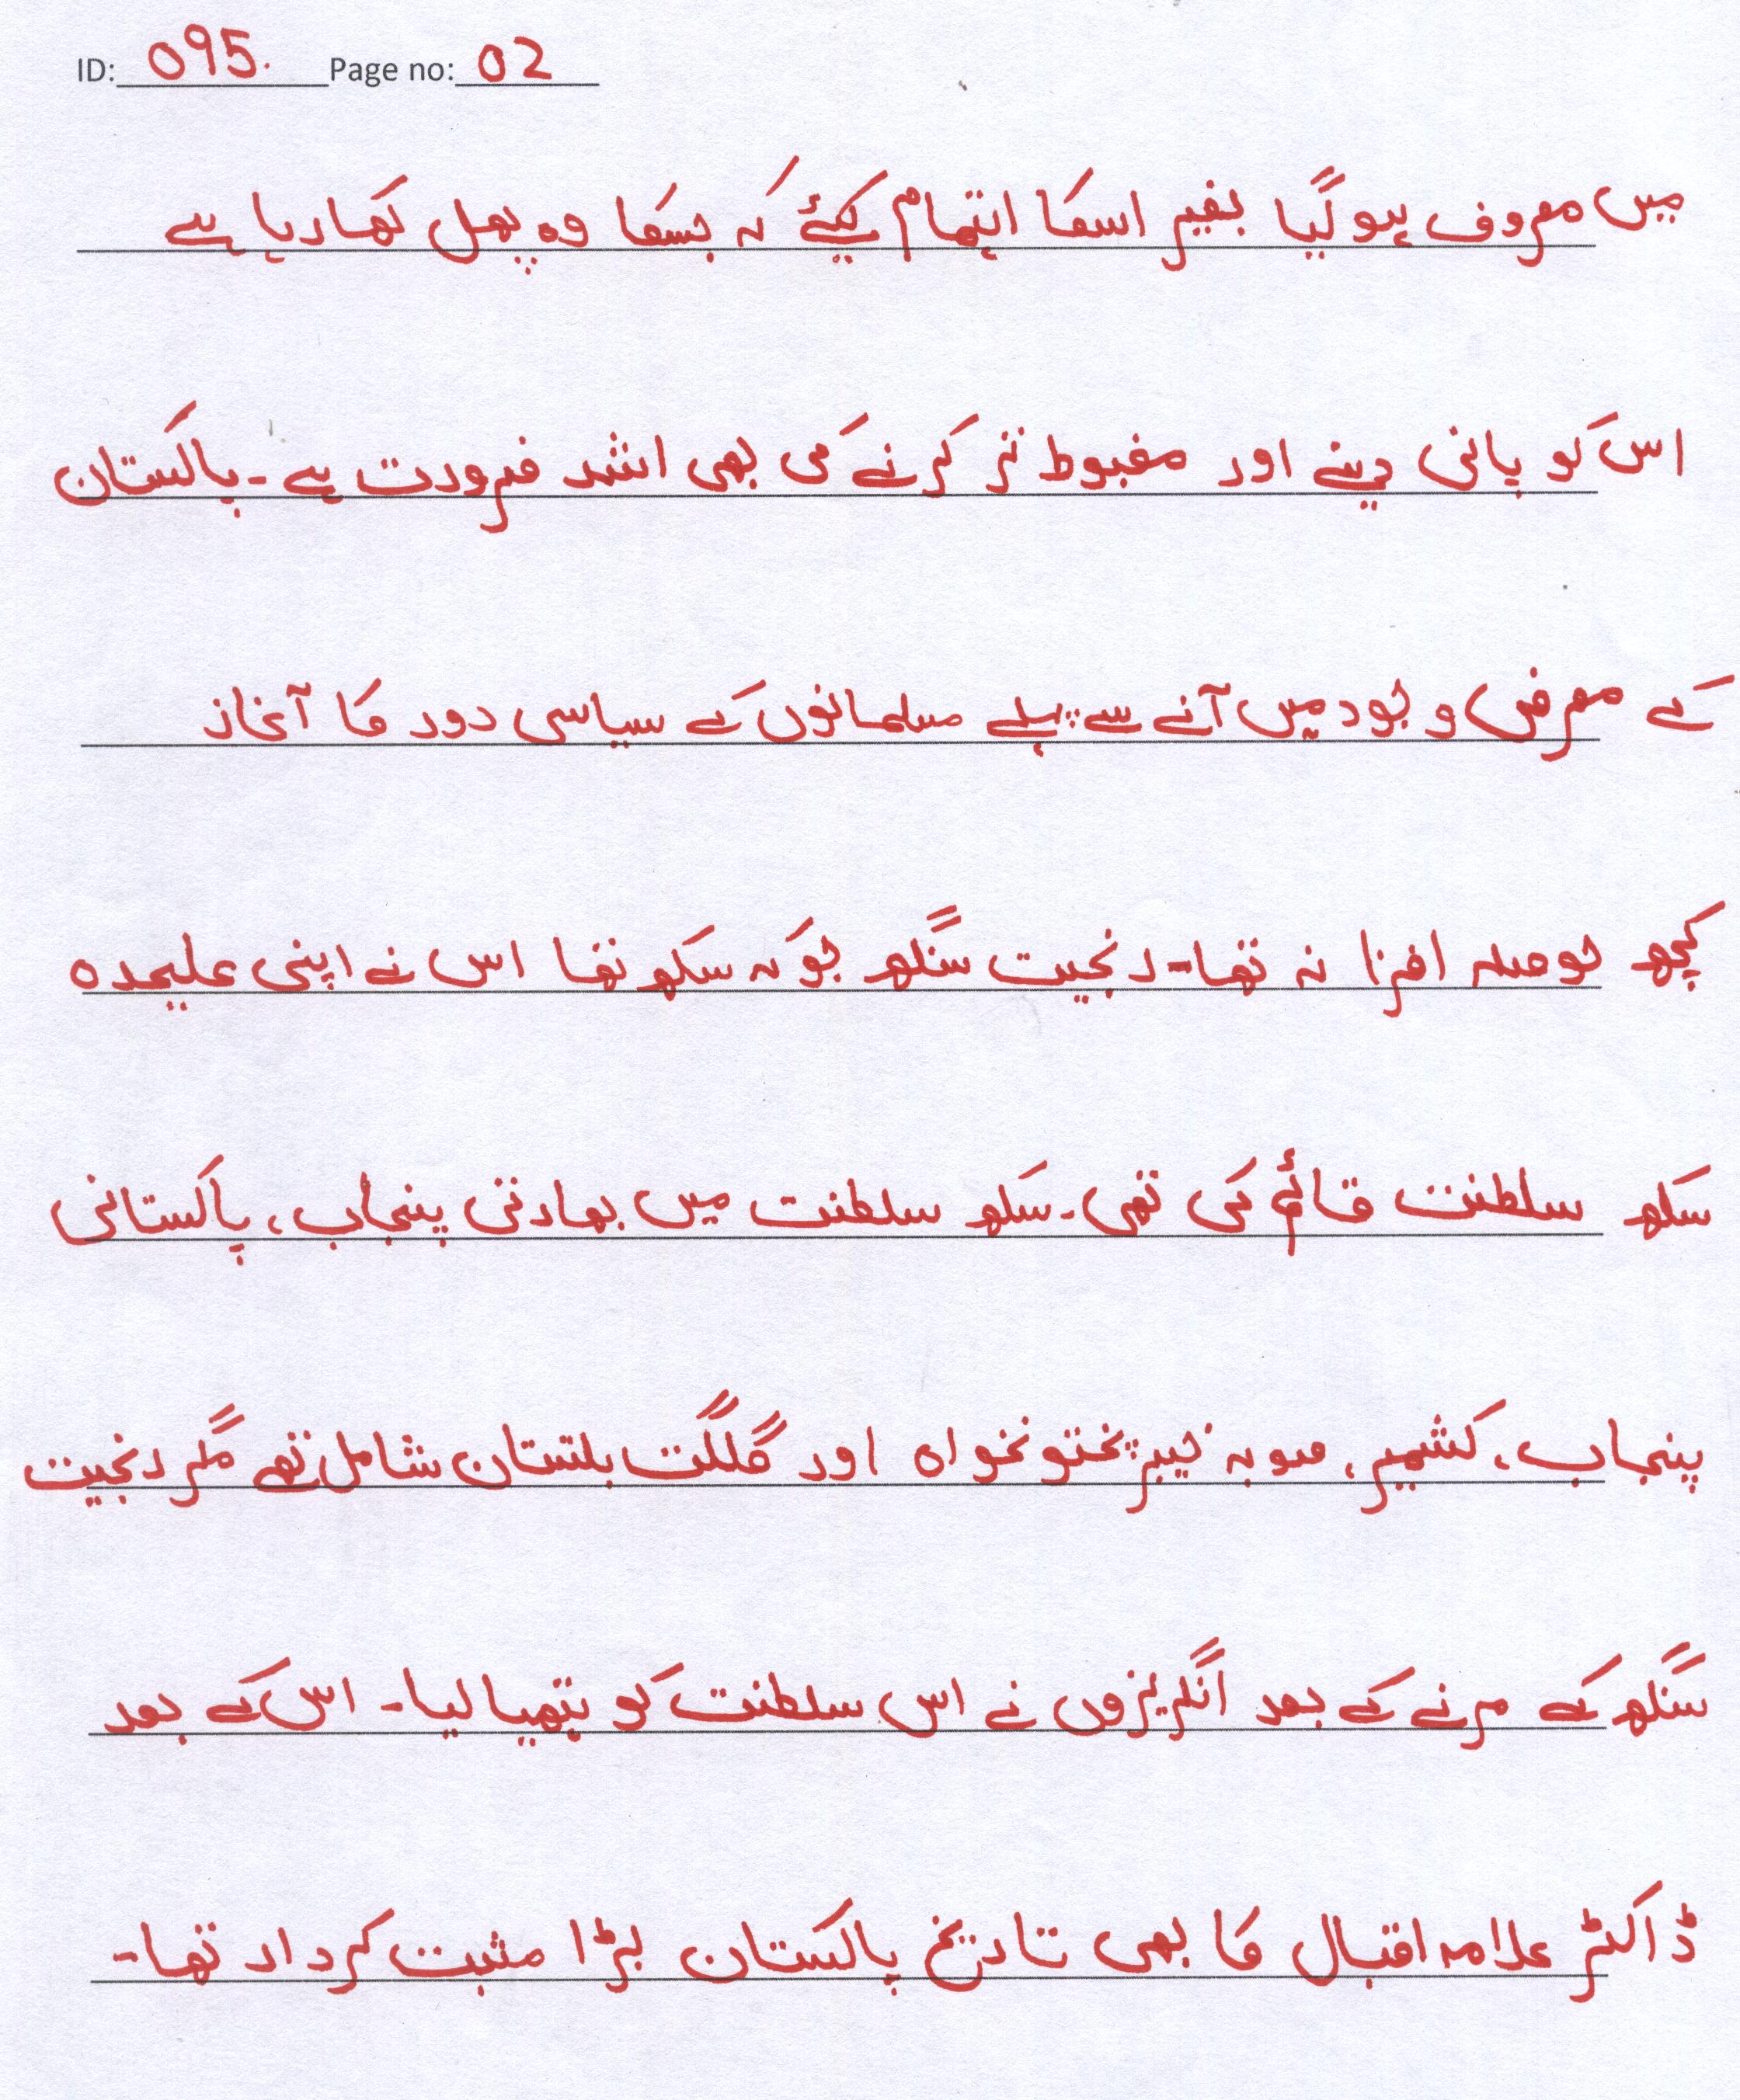 ID: 095. Page no: 02
میں معروف ہو گیا بغیر اسکا اہتمام کیئے کہ جسکا وہ پھل کھا رہا ہے
اس کو پانی دینے اور مضبوط تر کرنے کی بھی اشد ضرورت ہے۔ پاکستان
کے معرض وجود میں آنے سے پہلے مسلمانوں کے سیاسی دور کا آغاز
کچھ حوصلہ افزا نہ تھا۔ رنجیت سنگھ جو کہ سکھ تھا اس نے اپنی علیحدہ
سکھ سلطنت قائم کی تھی۔ سکھ سلطنت میں بھارتی پنجاب، پاکستانی
پنجاب، کشمیر، صوبہ خیبر پختونخواہ اور گلگت بلتستان شامل تھے مگر رنجیت
سنگھ کے مرنے کے بعد انگریزوں نے اس سلطنت کو ہتھیا لیا۔ اس کے بعد
ڈاکٹر علامہ اقبال کا بھی تاریخ پاکستان بڑا مثبت کردار تھا۔